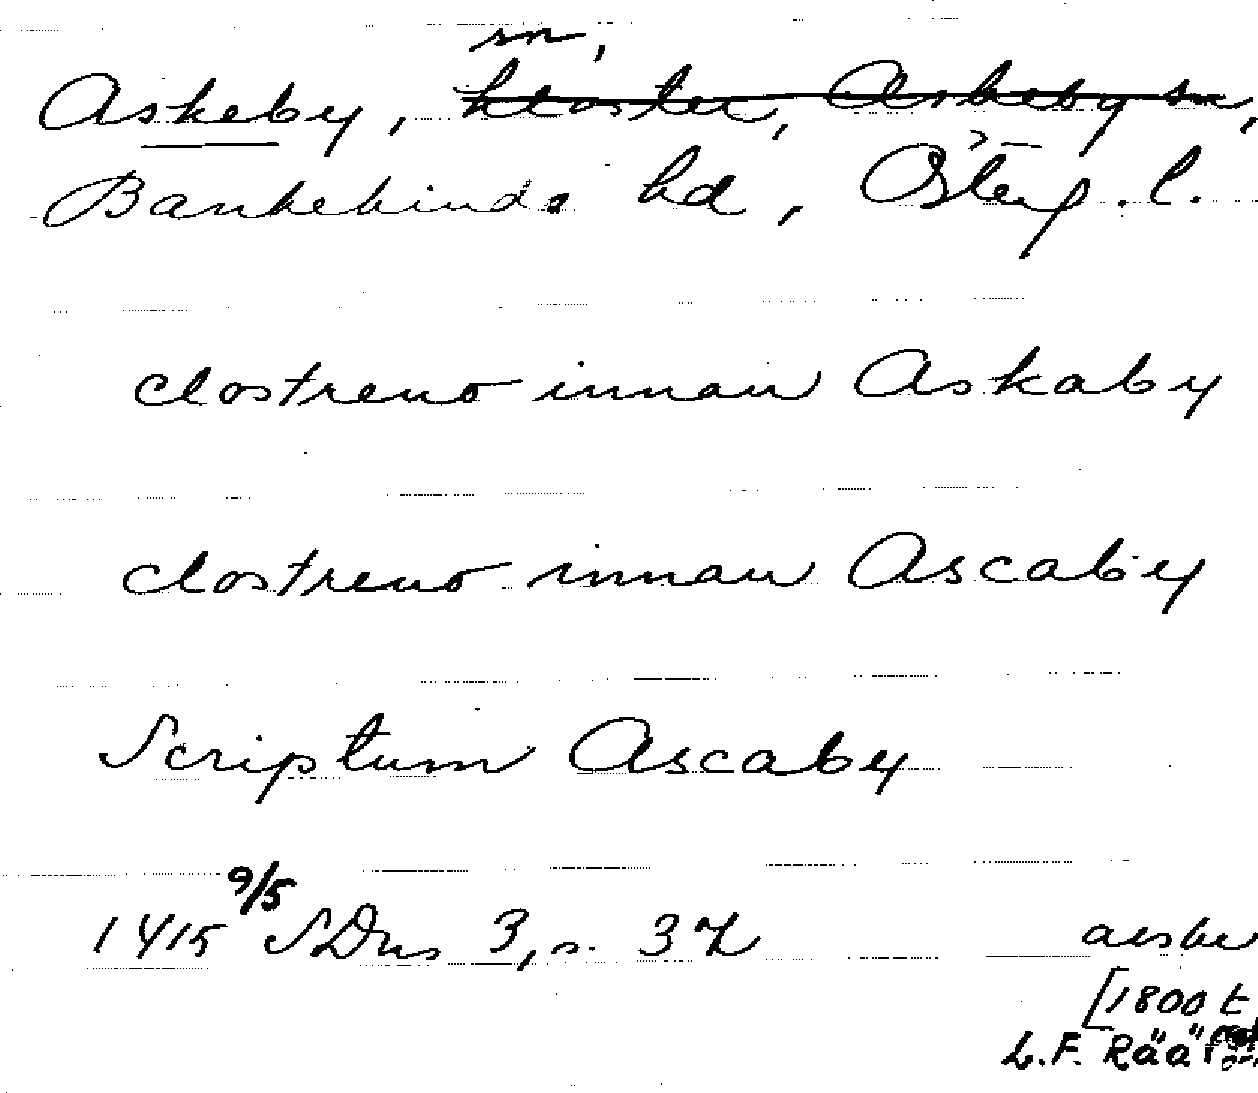 sn,
Askeby, kloster, Askeby sn,
Bankekinds hd, Österg. l.
clostreno innan Askaby
clostreno innan Ascaby
Scriptum Ascaby
9/5
1415 SDns 3, s. 37
[1800 t
L.F. Rääf